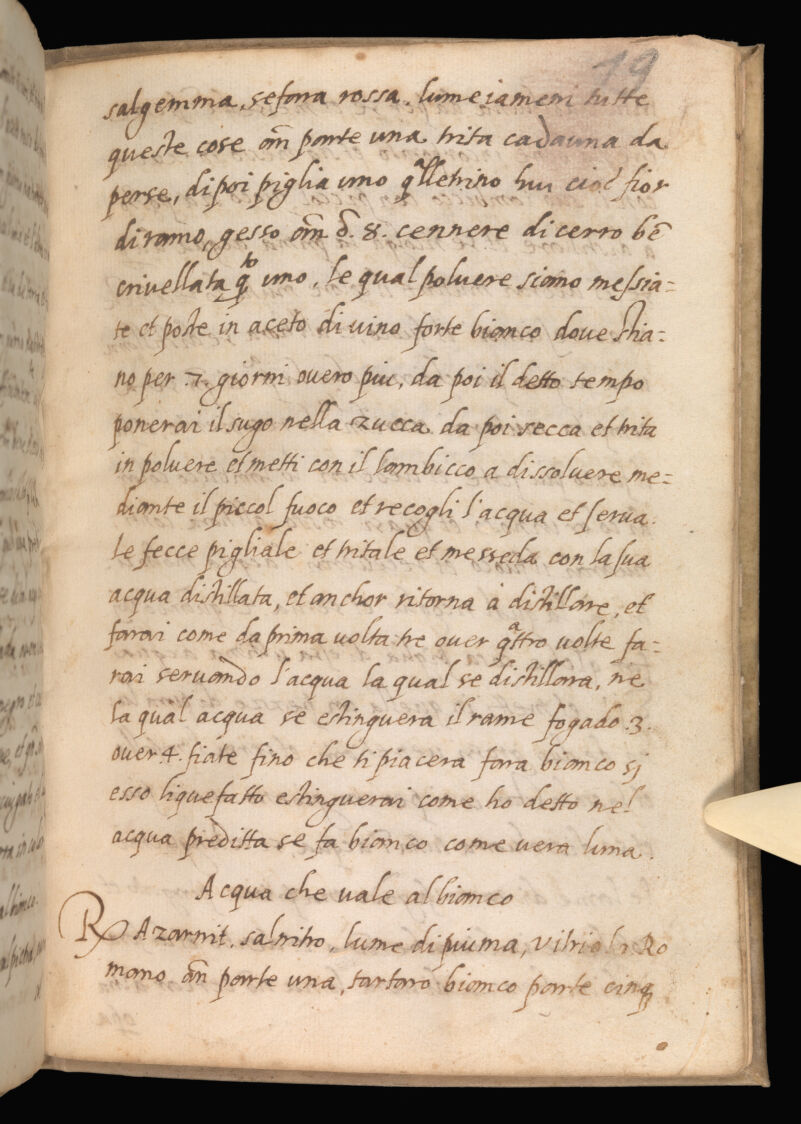 19
salgemma, sefora rossa, lume iameni tutte
queste cose añ parte una trita cadauna da
perse, dipoi piglia uno q̃lletrino hui cioè fior
di ramo, gesso añ ʒ. 8. cennere di cerro bẽ
crivellata q̃to uno, le qual polvere siano messia=
te et poste in aceto di vino forte bianco dove stia=
no per .7. giorni overo piu, da poi il detto tempo
ponerai il sugo nella zucca da poi secca et trita
in polvere et metti con il lambicco a dissolvere me=
diante il piccol fuoco et recogli l'acqua et serva.
le fecce pigliale et tritale et messeda con la sua
acqua distillata, et anchor ritorna à distillare, et
farai come da prima volta tre over q̃ttro volte fa=
rai servando l'acqua la qual se distillara, ne
la qual acqua se estinguera il rame fogado .3.
over 4. fiate fino che ti piacera fara bianco si
esso liquefatto estinguerai come ho detto nel
acqua preditta se fa bianco come vera luna.
Acqua che vale al bianco
℞ Azarnit, salnitro, lume di piuma, Vitriolo Ro
mano añ parte una, tartaro bianco parte cinq̃